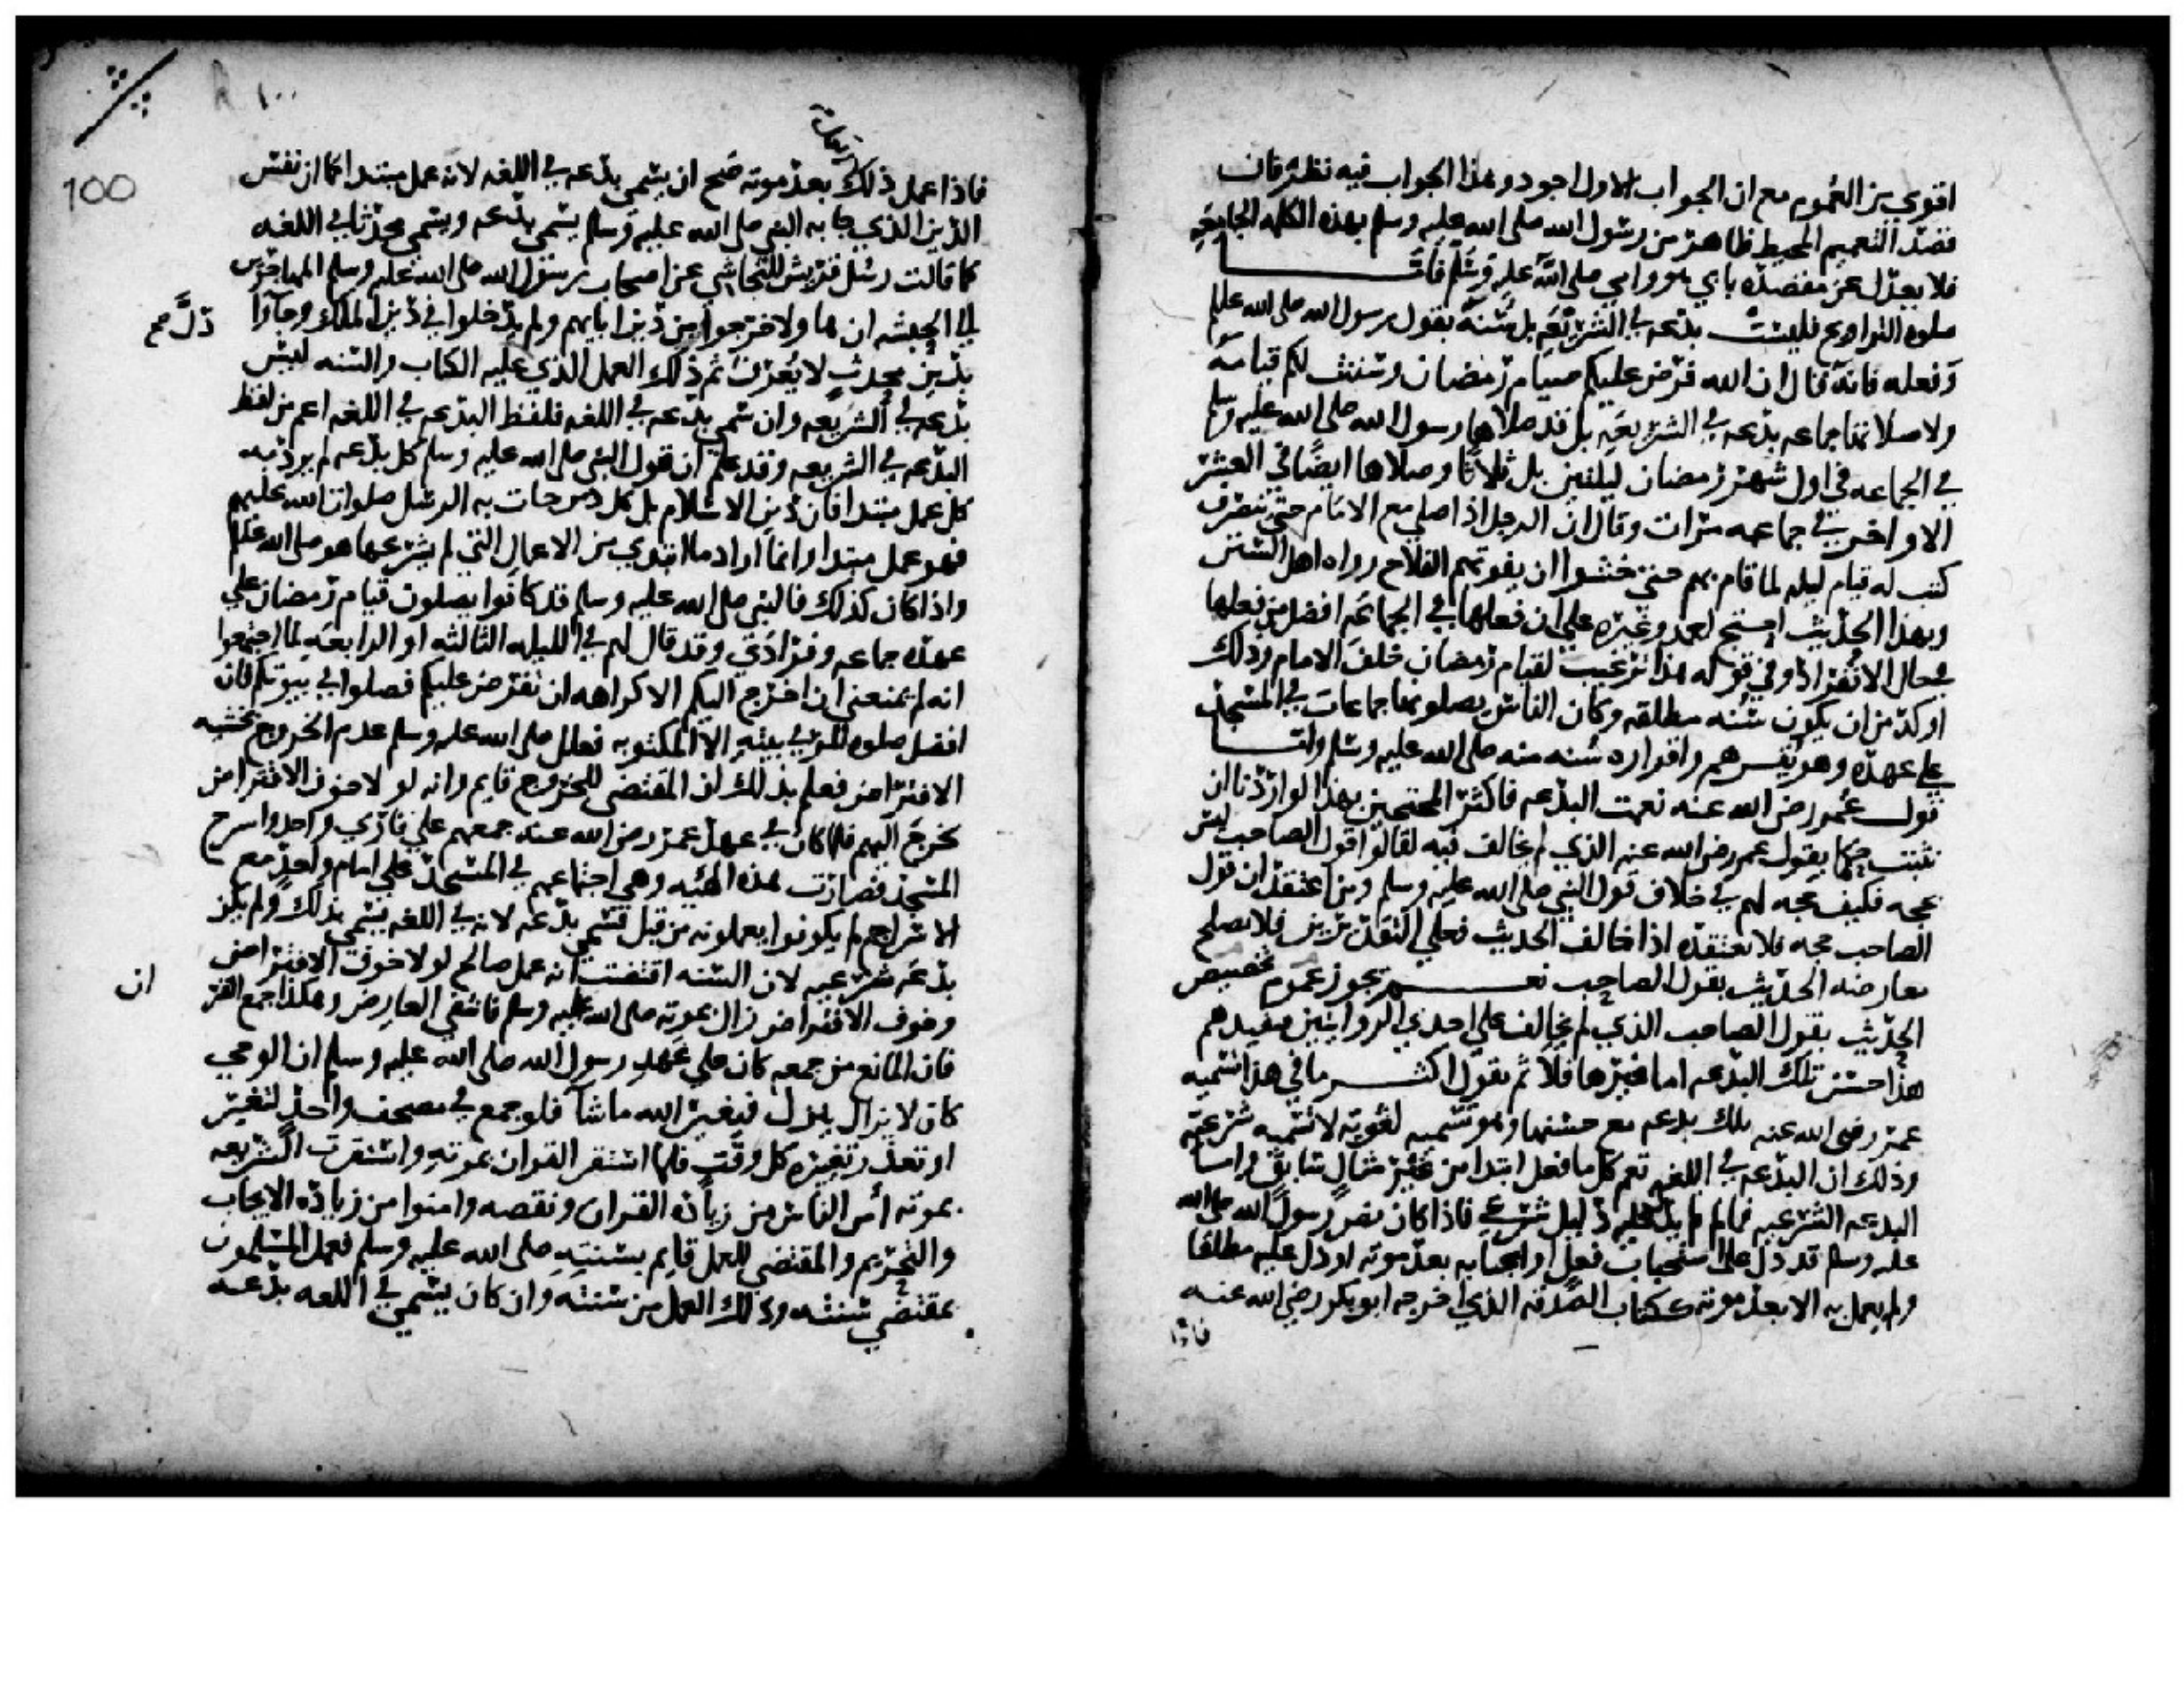 اقوي من العموم مع ان الجواب الاول اجود وهذا الجواب فيه نظر فان
قصد التعميم المحيط ظاهر من رسول الله صلى الله عليه وسلم بهذه الكلمه الجامعه
فلا يعدل عن مقصده بابي هو وامي صلى الله عليه وسلم فاما
صلوه التراويح فليست بدعه في الشريعه بل سنه بقول رسول الله صلى الله عليه
وفعله فانه قال ان الله فرض عليكم صيام رمضان وسننت لكم قيامه
ولا صلاتها جماعه بدعه في الشريعه بل قد صلاها رسول الله صلى الله عليه وسلم
في الجماعه في اول شهر رمضان ليلتين بل ثلاثا وصلاها ايضا في العشر
الاواخر في جماعه مرات وقال ان الرجل اذا صلى مع الامام حتى ينصرف
كتب له قيام ليله لما قام بهم حتى خشوا ان يفوتهم الفلاح رواه اهل السنن
وبهذا الحديث احتج احمد وغيره على ان فعلها في الجماعه افضل من فعلها
في حال الانفراد وفي قوله هذا ترغيب لقيام رمضان خلف الامام وذلك
اوكد من ان يكون سنه مطلقه وكان الناس يصلونها جماعات في المسجد
على عهده وهو يقرهم واقراره سنه منه صلى الله عليه وسلم واما
قول عمر رضي الله عنه نعمت البدعه فاكثر المحتجين بهذا لو اردنا ان
نثبت حكما بقول عمر رضي الله عنه الذي لم يخالف فيه لقالوا قول الصاحب ليس
بحجه فكيف حجه لهم في خلاف قول النبي صلى الله عليه وسلم ومن اعتقد ان قول
الصاحب حجه فلا يعتقده اذا خالف الحديث فعلى التقديرين فلا يصلح
معارضه الحديث بقول الصاحب نعم يجوز عموم تخصيص
الحديث بقول الصاحب الذي لم يخالف على احدي الروايتين فيفيدهم
هذا حسن تلك البدعه اما غيرها فلا ثم نقول اكثر ما في هذا تسميه
عمر رضي الله عنه تلك بدعه مع حسنها وهو تسميه لغويه لا تسميه شرعيه
وذلك ان البدعه في اللغه تعم كل ما فعل ابتدا من غير مثال سابق واما
البدعه الشرعيه فما لم يدل عليه دليل شرعي فاذا كان نص رسول الله صلى الله
عليه وسلم قد دل على استحباب فعل او ايجابه بعد موته او دل عليه مطلقا
ولم يعمل به الا بعد موته ككتاب الصدقه الذي اخرجه ابو بكر رضي الله عنه
فاذا
١٠٠
100
فاذا عمل ذلك بعد موته صح ان يسمى بدعه في اللغه لانه عمل مبتدا كما ان نفس
الدين الذي جا به النبي صلى الله عليه وسلم يسمى بدعه ويسمى محدثا في اللغه
كما قالت رسل قريش للنجاشي عن اصحاب رسول الله صلى الله عليه وسلم المهاجرين
الى الحبشه ان هاولا خرجوا من دين ابايهم ولم يدخلوا في دين الملك وجاوا
بدين محدث لا يعرف ثم ذلك العمل الذي عليه الكتاب والسنه ليس
دل صح
بدعه في الشريعه وان سمي بدعه في اللغه فلفظ البدعه في اللغه اعم من لفظ
البدعه في الشريعه وقد علم ان قول النبي صلى الله عليه وسلم كل بدعه لم يرد به
كل عمل مبتدا فان دين الاسلام بل كل دين جات به الرسل صلوات الله عليهم
فهو عمل مبتدا وانما اراد ما ابتدي من الاعمال التي لم يشرعها هو صلى الله عليه
واذا كان كذلك فالنبي صلى الله عليه وسلم قد كانوا يصلون قيام رمضان على
عهده جماعه وفرادي وقد قال لهم في الليله الثالثه او الرابعه لما اجتمعوا
انه لم يمنعني ان اخرج اليكم الا كراهه ان تفترض عليكم فصلوا في بيوتكم فان
افضل صلوه المر في بيته الا المكتوبه فعلل صلى الله عليه وسلم عدم الخروج بخشيه
الافتراض فعلم بذلك ان المقتضي للخروج قايم وانه لولا خوف الافتراض
لخرج اليهم فلما كان في عهد عمر رضي الله عنه جمعهم على قاري واحد واسرج
المسجد فصارت هذه الهيئه وهي اجتماعهم في المسجد على امام واحد مع
الاسراج لم يكونوا يعملونه من قبل فسمي بدعه لانه في اللغه يسمى بذلك ولم يكن
بدعه شرعيه لان السنه اقتضت انه عمل صالح لولا خوف الافتراض
وخوف الافتراض زال بموته صلى الله عليه وسلم فانتفى العارض وهكذا جمع القر
ان
فان المانع من جمعه كان على عهد رسول الله صلى الله عليه وسلم ان الوحي
كان لا يزال ينزل فيغير الله ما شآ فلو جمع في مصحف واحد لتغير
او تعذر تغييره كل وقت فلما استقر القران بموته واستقرت الشريعه
بموته أمن الناس من زياده القران ونقصه وامنوا من زياده الايجاب
والتحريم والمقتضي للعمل قايم بسنته صلى الله عليه وسلم فعمل المسلمون
بمقتضى سنته وذلك العمل من سنته وان كان يسمى في اللغه بدعه